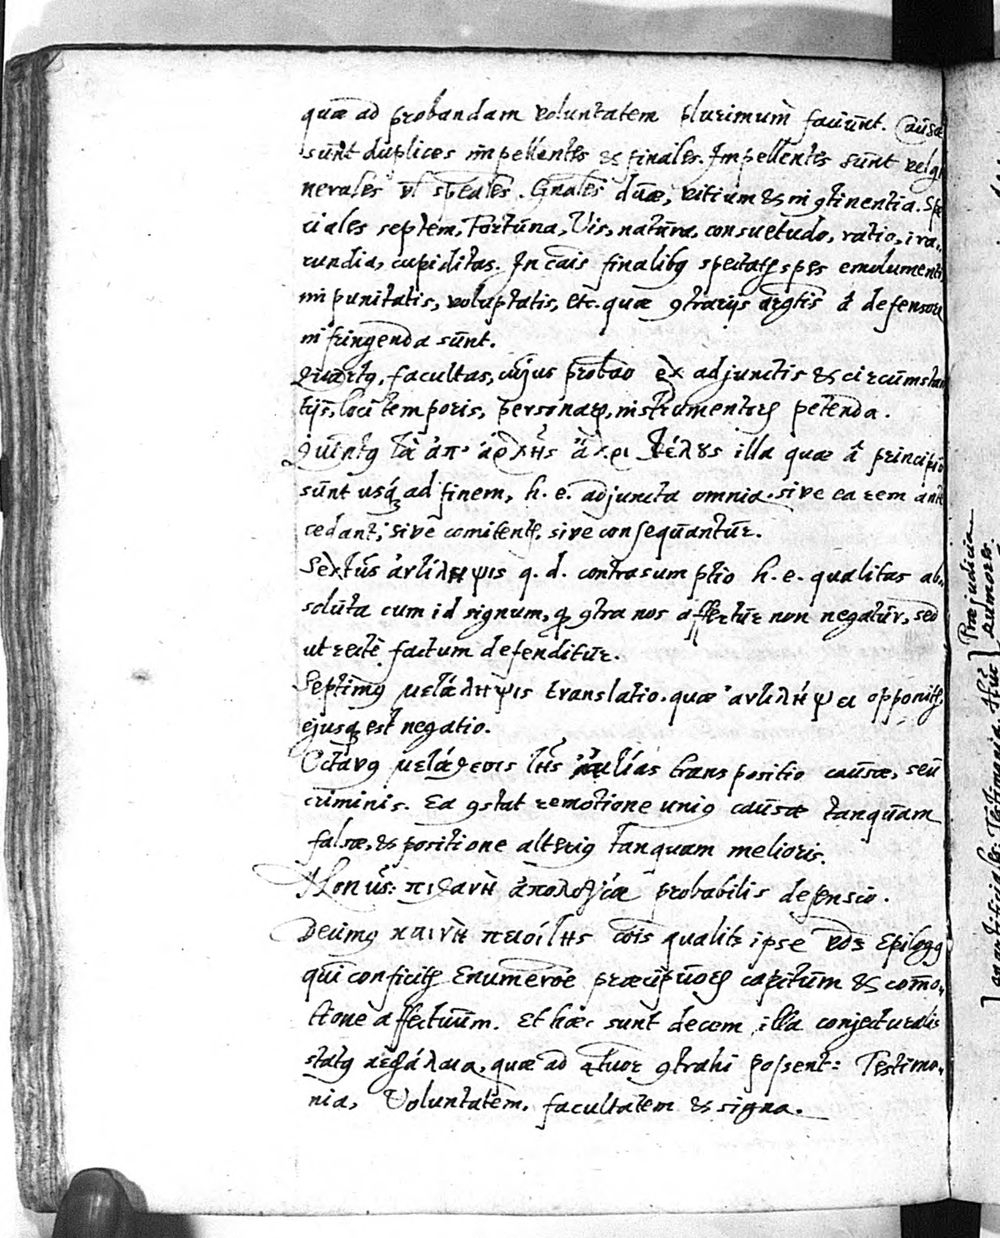 quæ ad probandam voluntatem plurimum̀ faciūnt. Caūsæ
sūnt duplices impellentes & finales. Impellentes sūnt vel ge
nerales vl spēales. Gn̄ales dūæ, vitium & incontinentia. Spe
ciales septem, Fortūna, Vis, natūra, consuetudo, ratio, ira„
cundia, cupiditas. In cāis finalibꝫ spectatur spes emolumenti,
impunitatis, voluptatis, etc. quæ ꝯtrarijs argtis à defensore
infringenda sūnt.
Quartꝰ, facultas, cujus probāo ex adjunctis & circūmstan
tijs, loci temporis, personarꝝ, instrumentorꝝ petenda.
Quintꝰ τὰ ἀπ' ἀρχῆς ἄχρι τέλους illa quæ à principio
sūnt usqꝫ ad finem, h. e. adjuncta omnia. sive ea rem ante
cedant, sive comitentr, sive consequantūr.
Sextus ἀντίληψις q. d. contrasumptio h. e. qualitas ab„
soluta cum id signum, qꝫ ꝯtra nos affertūr non negatūr, sed
ut rectè factum defenditūr.
Septimꝰ μετάληψις translatio. quæ ἀντιλήψει opponitr,
ejusqꝫ est negatio.
Octavꝰ μετάθεσις τῆς αἰτίας transpositio causæ, seū
criminis. Ea ꝯstat remotione uniꝰ causæ tanquam
falsæ, & positione alteriꝰ tanquam melioris.
Nonūs: πιθανὴ ἀπολογία probabilis defensio.
Decimꝰ κοινὴ ποιότης cōis qualits ipse vdr Epilogꝰ
qui conficitr Enumerōe præcipuorꝝ capitūm & com̄o„
tione affectuūm. Et hæc sunt decem illa conjecturalis
statꝰ κεφάλαια, quæ ad qtuor ꝯtrahi possent: Testimo„
nia, Voluntatem, facultatem & signa.
Præjudicia
rumores.